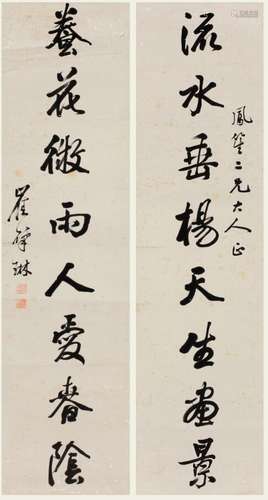 鳳笙二兄大人正
流水垂楊天生畫景
養花微雨人愛春陰
崔肇琳